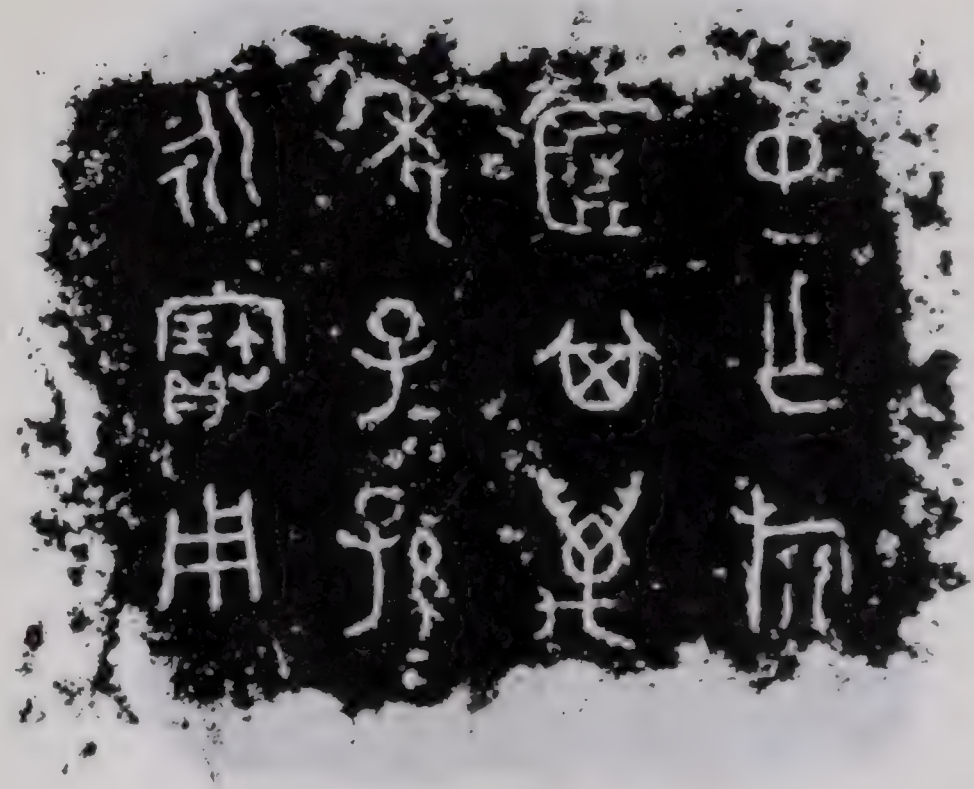 乍旅
其萬
年子=孫=
永寶用